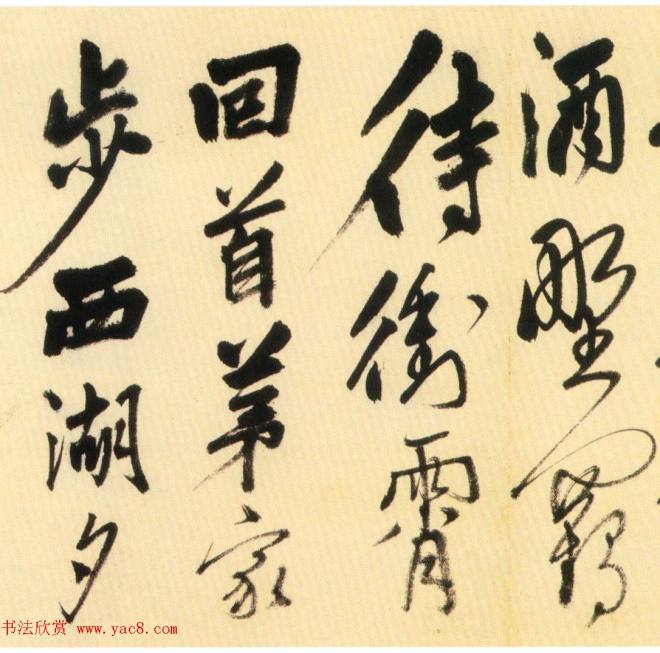 酒野
待衝霄
回首茅家
步西湖夕
书法欣赏 www.yac8.com